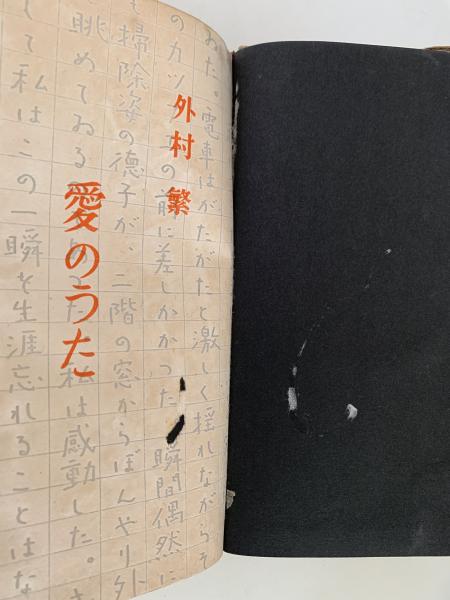 外村 繁
愛のうた
ゐた。電車はがたがたと激しく揺れながらそ
のカッ
の前に差しかかつた 瞬間偶然に
も掃除姿の徳子が、二階の窓からぼんやり外
眺めてゐる
た 私は感動した。
して私はこの一瞬を生涯忘れることはな